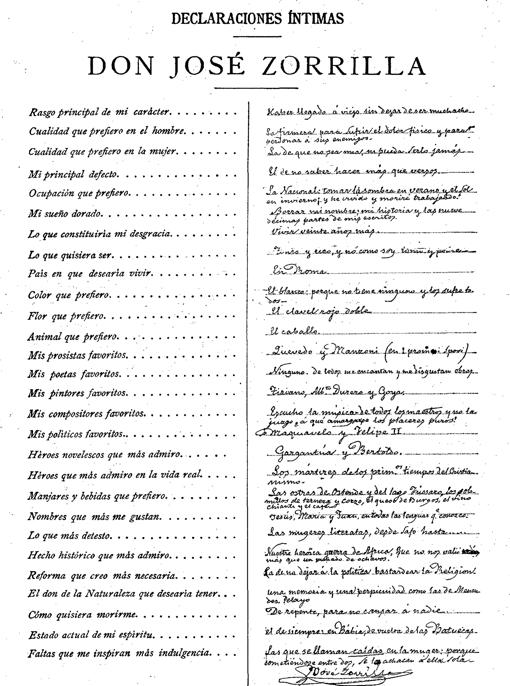 DECLARACIONES ÍNTIMAS
DON JOSÉ ZORRILLA
Rasgo principal de mi carácter. Haber llegado á viejo sin dejar de ser muchacho
Cualidad que prefiero en el hombre. La firmeza para sufrir el dolor físico y para
perdonar á sus enemigos.
Cualidad que prefiero en la mujer. La de que no sea mia, ni pueda serlo jamás
Mi principal defecto. El de no saber hacer más que versos.
Ocupación que prefiero. La Nacional: tomar la sombra en verano y el sol
en invierno, y he vivido y moriré trabajando.
Mi sueño dorado. Borrar mi nombre, mi historia y las nueve
décimas partes de mis escritos
Lo que constituiría mi desgracia. Vivir veinte años más.
Lo que quisiera ser. y rico, y nó como soy y
País en que desearía vivir. En Roma.
Color que prefiero. El blanco: porque no tiene ninguno y los supe
dos
Flor que prefiero. El clavel rojo doble
Animal que prefiero. El caballo.
Mis prosistas favoritos. Quevedo y Manzoni (en I promesi sposi)
Mis poetas favoritos. Ninguno: de todos me encantan y me disgustan obras
Mis pintores favoritos. Tiziano, Alb.to Durero y Goya.
Mis compositores favoritos. Escucho la música de todos los maestros y no la
juzgo, á que los placeres puros.
Mis políticos favoritos. Maquiavelo y Felipe II
Héroes novelescos que más admiro. Gargantúa y Bertoldo.
Héroes que más admiro en la vida real. Los martires de los prim.os tiempos del Cristia-
nismo.
Manjares y bebidas que prefiero. Las ostras de Ostende y del lago Fusaro, los solo
millos de ternera y corzo, el queso de Burgos, el vino
chianti y el café
Nombres que más me gustan. Jesús, María y Juan, en todas las lenguas q.e conozco.
Lo que más detesto. Las mugeres literatas, desde Safo hasta
Hecho histórico que más admiro. Nuestra heróica guerra de Africa, que no nos valió
más que un puñado de ochavos.
Reforma que creo más necesaria. La de no dejar á la politica bastardear la Religion
El don de la Naturaleza que desearía tener. una memoria y una como las de Menen
dez Pelayo
Cómo quisiera morirme. De repente, para no cansar á nadie
Estado actual de mi espíritu. el de siempre: en Babia, de vuelta de las Batuecas.
Faltas que me inspiran más indulgencia. Las que se llaman caidas en la muger: porque
cometiéndose entre dos, se la achacan á ella sola
José Zorrilla